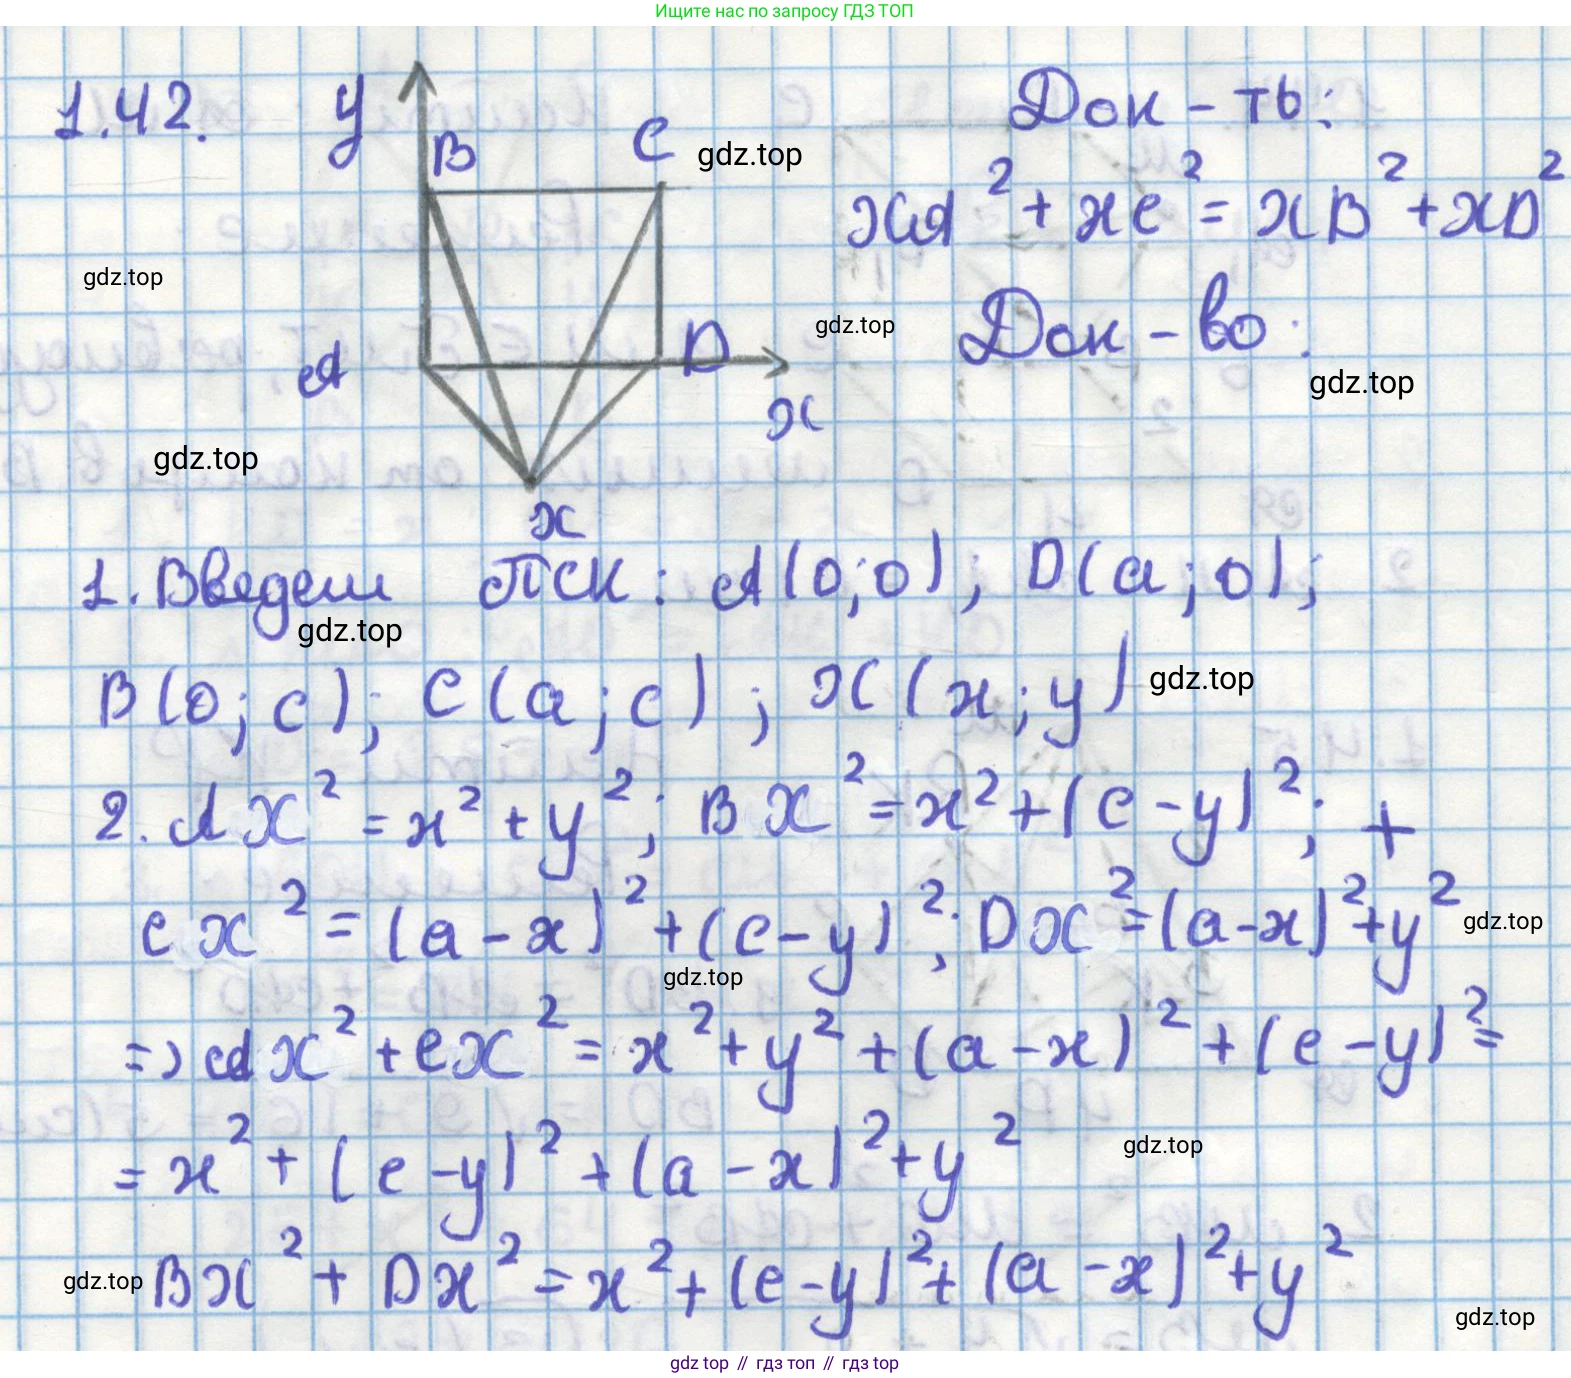 Ищите нас по запросу ГДЗ ТОП
1.42.
y
B
C
gdz.top
Док-ть:
XA² + XC² = XB² + XD²
gdz.top
A
D
x
gdz.top
Док-во:
gdz.top
gdz.top
X
1. Введем ПСК: A(0;0); D(a;0);
gdz.top
B(0;c); C(a;c); X(x;y)
gdz.top
2. AX² = x² + y²; BX² = x² + (c-y)²; +
CX² = (a-x)² + (c-y)²; DX² = (a-x)² + y²
gdz.top
gdz.top
=> AX² + CX² = x² + y² + (a-x)² + (c-y)² =
= x² + (c-y)² + (a-x)² + y²
gdz.top
gdz.top
BX² + DX² = x² + (c-y)² + (a-x)² + y²
gdz.top
gdz top // гдз топ // гдз top